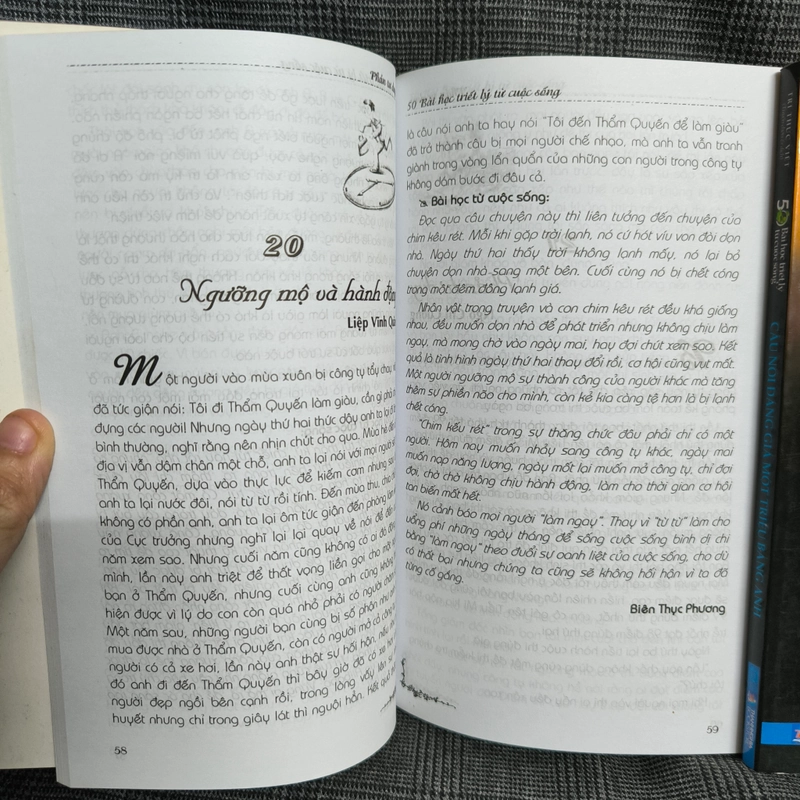 Phần tử
20
Ngưỡng mộ và hành
Liệp Vĩnh
Một người vào mùa xuân bị công ty tẩy chay,
đã tức giận nói: Tôi đi Thẩm Quyến làm giàu, cần gì phải
đựng các người! Nhưng ngày thứ hai thức dậy anh ta lại đi
bình thường, nghĩ rằng nên nhịn chút cho qua. Mùa hè
địa vị vẫn dậm chân một chỗ, anh ta lại nói với mọi người
Thẩm Quyến, dựa vào thực lực để kiếm cơm nhưng sau
anh ta lại nước đôi, nói từ từ rồi tính. Đến mùa thu,
không có phần anh, anh ta lại ôm tức giận đến phòng làm
của Cục trưởng nhưng nghĩ lại lại quay về nói để đến
năm xem sao. Nhưng cuối năm cũng không có ai
mình, lần này anh triệt để thất vọng liền gọi cho một
bạn ở Thẩm Quyến, nhưng cuối cùng anh cũng không
hiện được vì lý do con còn quá nhỏ phải có người
Một năm sau, những người bạn cùng bị số phận như
mua được nhà ở Thẩm Quyến, còn có người mở cả công
người có cả xe hơi, lần này anh thật sự hối hận,
đó anh đi đến Thẩm Quyến thì bây giờ đã có xe
người đẹp ngồi bên cạnh rồi, trong lòng vẩy lên
huyết nhưng chỉ trong giây lát thì nguội hẳn. Kết quả
58
50 Bài học triết lý từ cuộc sống
là câu nói anh ta hay nói "Tôi đến Thẩm Quyến để làm giàu"
đã trở thành câu bị mọi người chế nhạo, mà anh ta vẫn tranh
giành trong vòng lẩn quẩn của những con người trong công ty
không dám bước đi đâu cả.
Bài học từ cuộc sống:
Đọc qua câu chuyện này thì liên tưởng đến chuyện của
chim kêu rét. Mỗi khi gặp trời lạnh, nó cứ hót víu von đòi dọn
nhà. Ngày thứ hai thấy trời không lạnh mấy, nó lại bỏ
chuyện dọn nhà sang một bên. Cuối cùng nó bị chết cóng
trong một đêm đông lạnh giá.
Nhân vật trong truyện và con chim kêu rét đều khá giống
nhau, đều muốn dọn nhà để phát triển nhưng không chịu làm
ngay, mà mong chờ vào ngày mai, hay đợi chút xem sao. Kết
quả là tình hình ngày thứ hai thay đổi rồi, cơ hội cũng vụt mất.
Một người ngưỡng mộ sự thành công của người khác mà tăng
thêm sự phiền não cho mình, còn kẻ kia càng tệ hơn là bị lạnh
chết cóng.
"Chim kêu rét" trong sự thăng chức đâu phải chỉ có một
người. Hôm nay muốn nhảy sang công ty khác, ngày mai
muốn nạp năng lượng, ngày mốt lại muốn mở công ty, chỉ đợi
đợi, chờ chờ không chịu hành động, làm cho thời gian cơ hội
tan biến mất hết.
Nó cảnh báo mọi người "làm ngay". Thay vì "từ từ" làm cho
uổng phí những ngày tháng để sống cuộc sống bình dị chi
bằng "làm ngay" theo đuổi sự oanh liệt của cuộc sống, cho dù
có thất bại nhưng chúng ta cũng sẽ không hối hận vì ta đã
từng cố gắng.
Biên Thục Phương
59
TRI THỨC VIỆT
50 Bài học triết lý
từ cuộc sống
CÂU NÓI ĐÁNG GIÁ MỘT TRIỆU BẢNG ANH